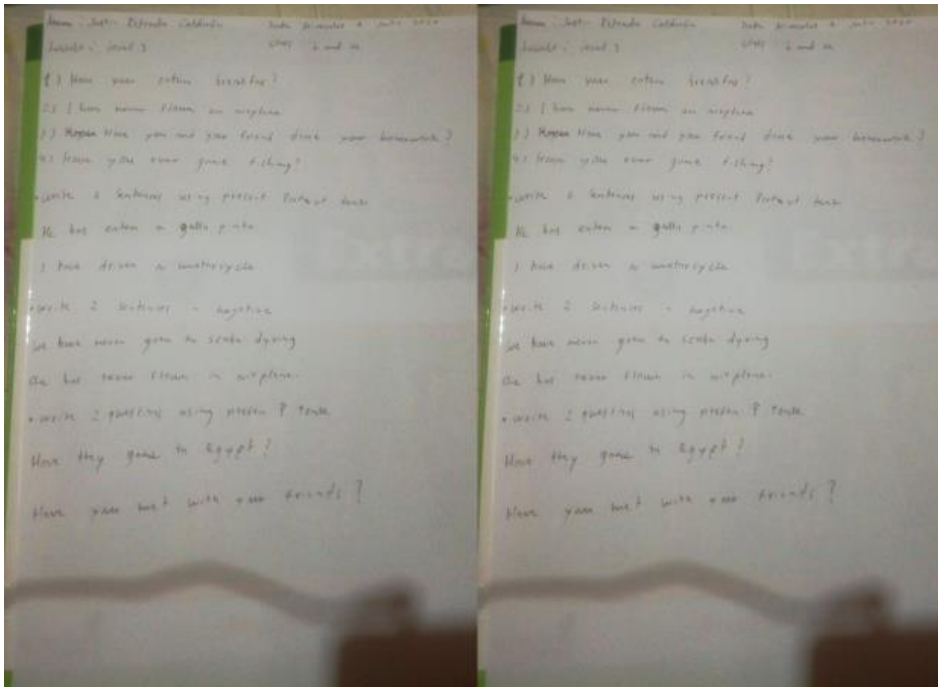 Level 3
1) Have you eaten
2) I have never flown an airplane
3) Have you and your friend done your homework?
4) Have you ever gone fishing?
• Write 2 sentences using present Perfect tense
He has eaten a gallo pinto
I have driven a motorcycle
• Write 2 sentences in negative
We have never gone to scuba dyving
She has never flown in airplane.
• Write 2 questions using presen P tense
Have they gone to Egypt?
Have you met with your friends?
Level 3
1) Have you eaten
2) I have never flown an airplane
3) Have you and your friend done your homework?
4) Have you ever gone fishing?
• Write 2 sentences using present Perfect tense
He has eaten a gallo pinto
I have driven a motorcycle
• Write 2 sentences in negative
We have never gone to scuba dyving
She has never flown in airplane.
• Write 2 questions using presen P tense
Have they gone to Egypt?
Have you met with your friends?